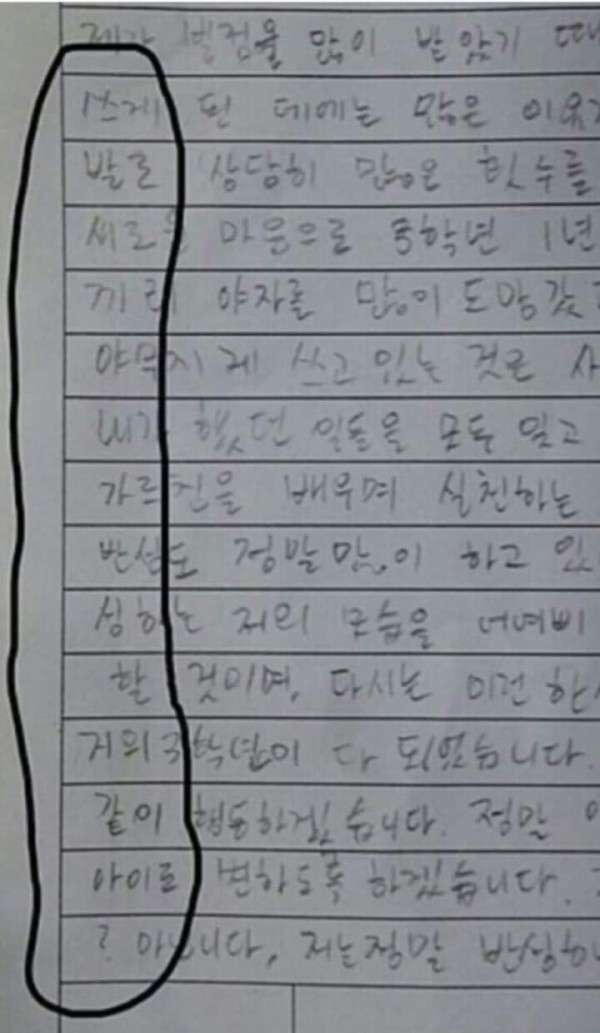 제가 벌점을 많이 받았기 때
쓰게 된 데에는 많은 이유
발로 상당히 많은 횟수를
새로운 마음으로 3학년 1년
끼리 야자를 많이 도망갔
야무지게 쓰고 있는 것은 사
내가 했던 일들을 모두 잊고
가르친을 배우며 실천하는
반성도 정말 많이 하고 있
성하는 저의 모습을 너여삐
할 것이며, 다시는 이런 한
저의 3학년이 다 되었습니다.
같이 행동하겠습니다. 정말
아이로 변하도록 하겠습니다.
? 아닙니다, 저는 정말 반성하